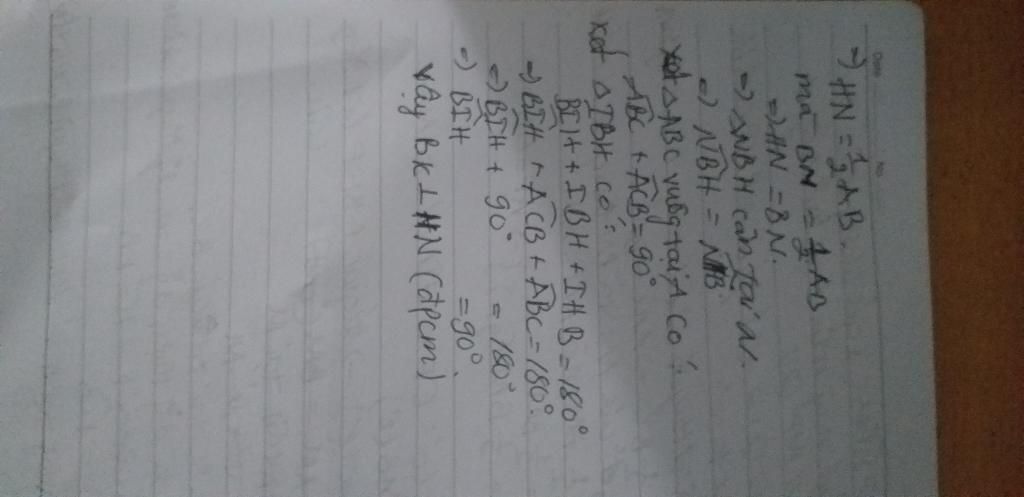 =) HN = 1/2 AB.
mà BN = 1/2 AB
=) HN = BN.
=) △NBH cân tại N.
=) NBH^ = NHB^.
xét △ABC vuông tại A có:
ABC^ + ACB^ = 90°
xét △IBH có:
BIH^ + IBH + IHB = 180°
=) BIH^ + ACB^ + ABC^ = 180°.
=) BIH^ + 90° = 180°
=) BIH^ = 90°.
vậy BK ⊥ HN (đpcm)